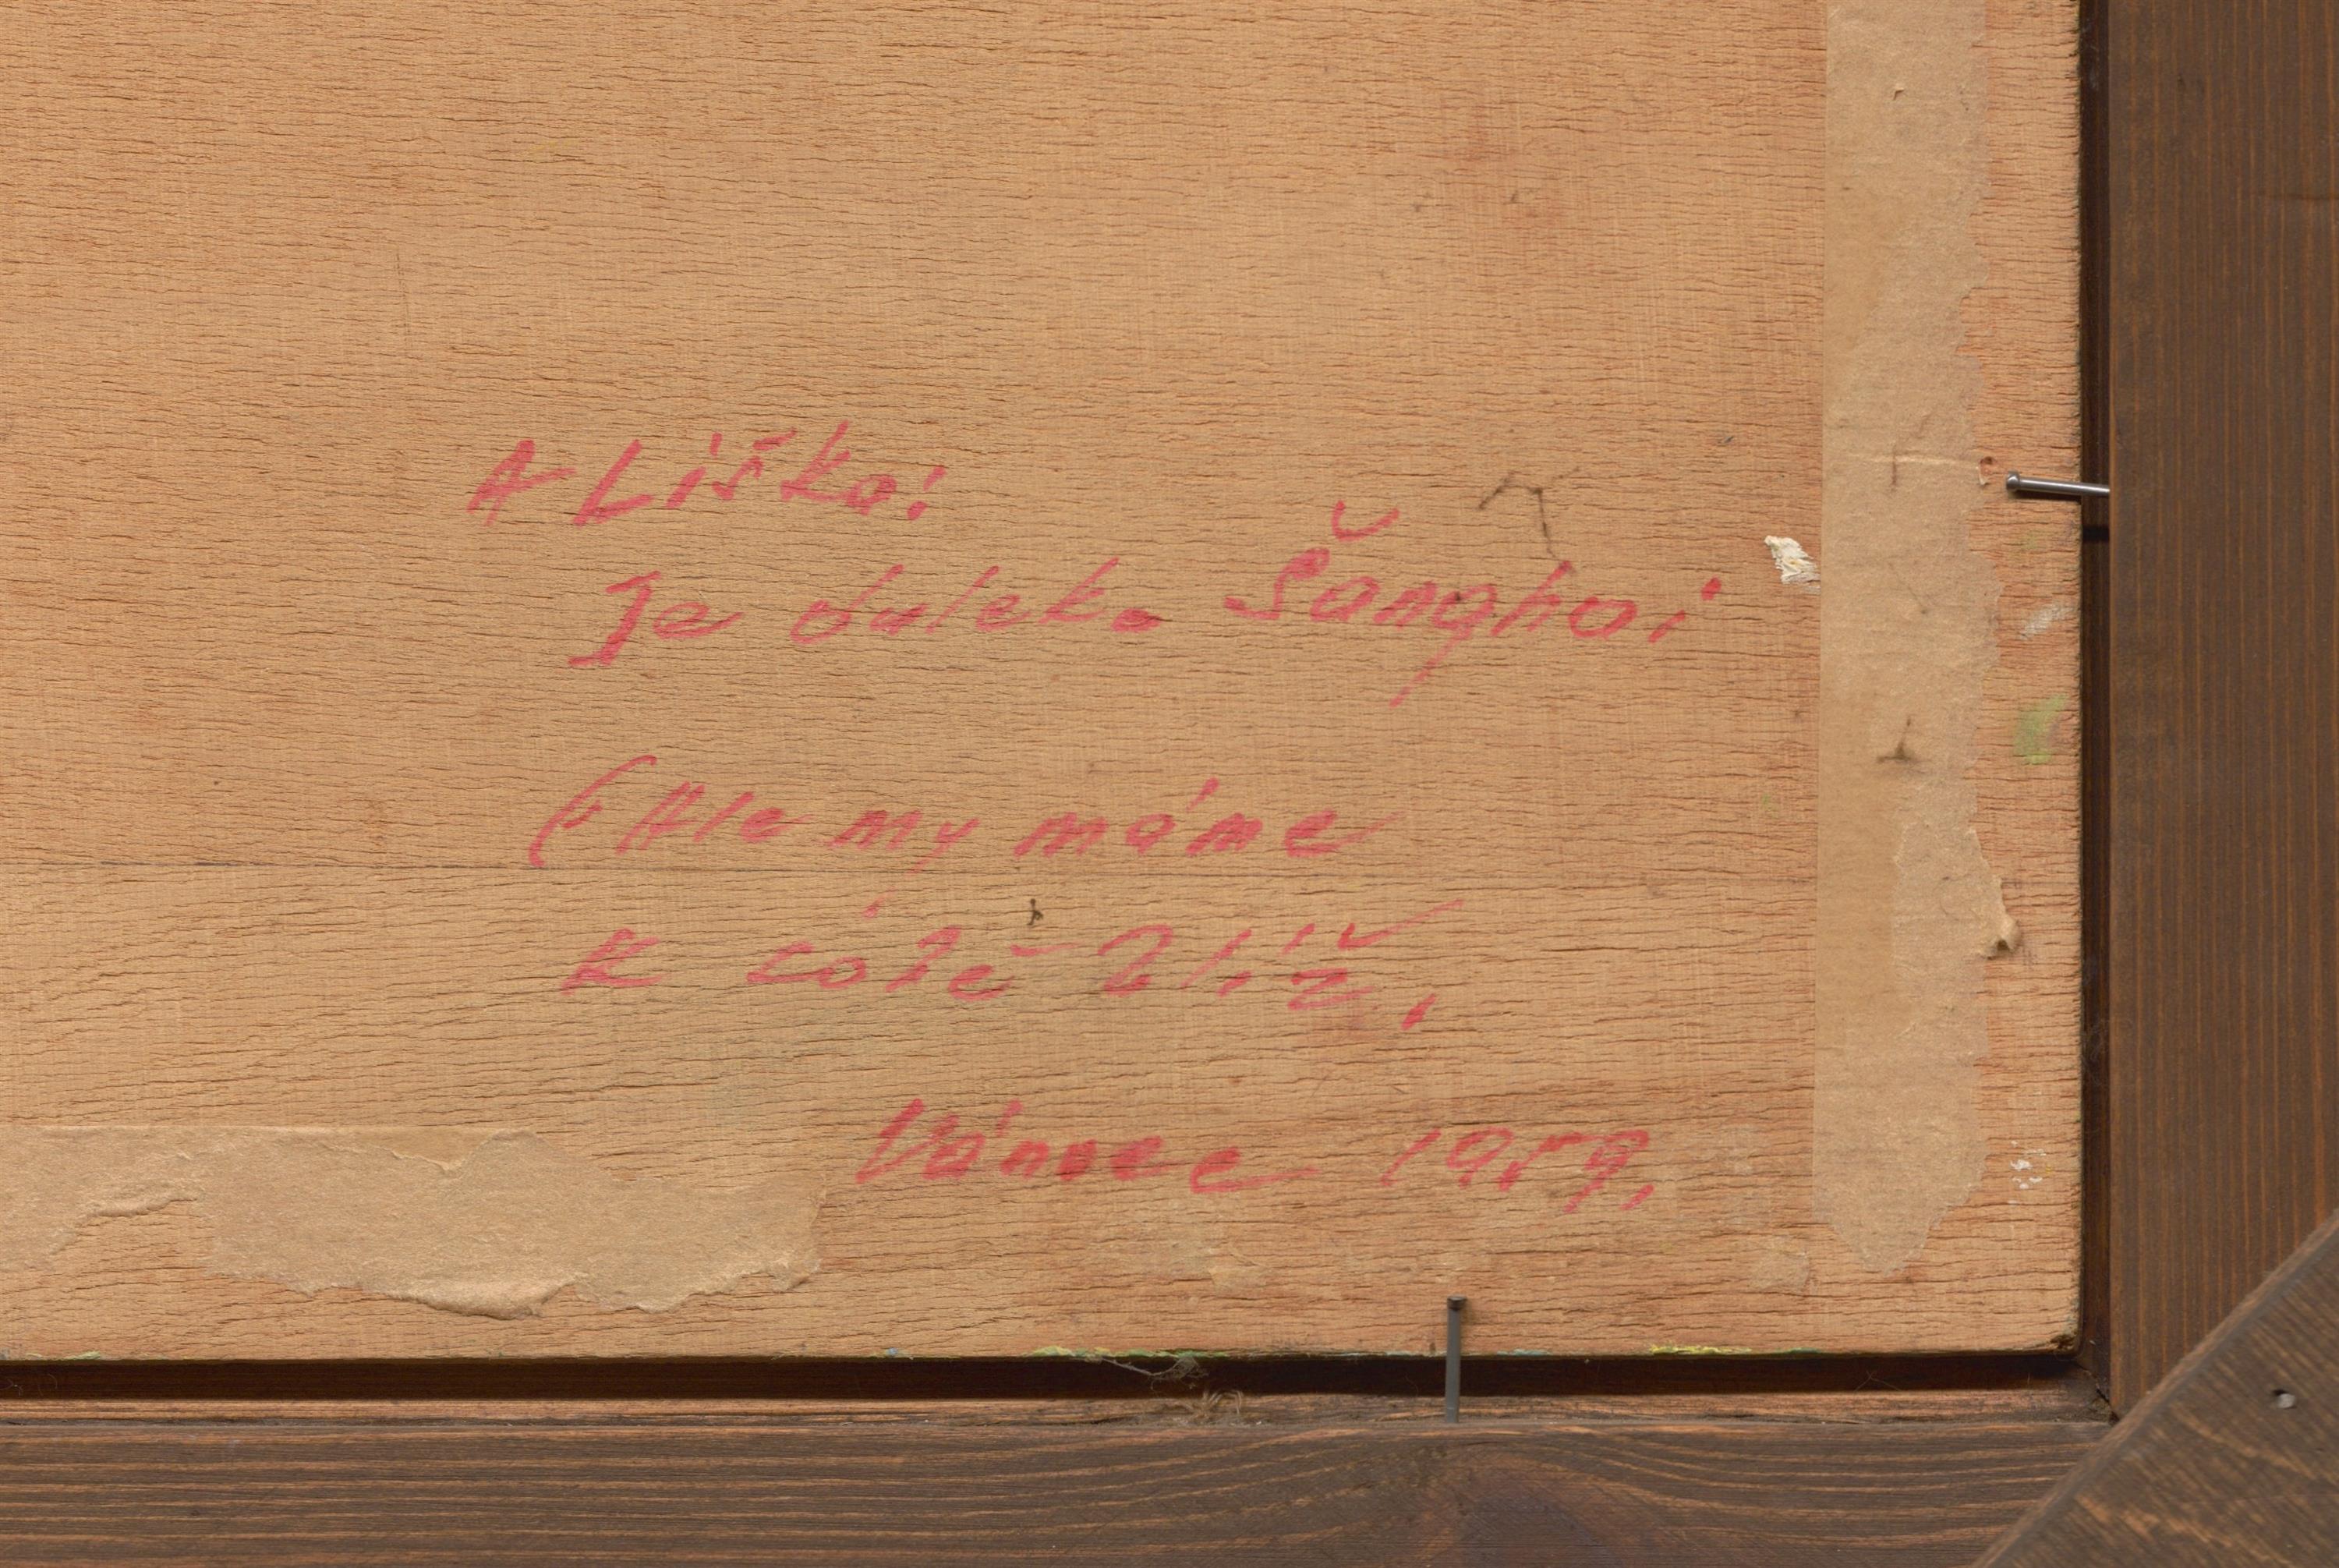 A Liška:
Je daleko Šanghai
(Ale my máme
k sobě blíž.
Vánoce 1959.